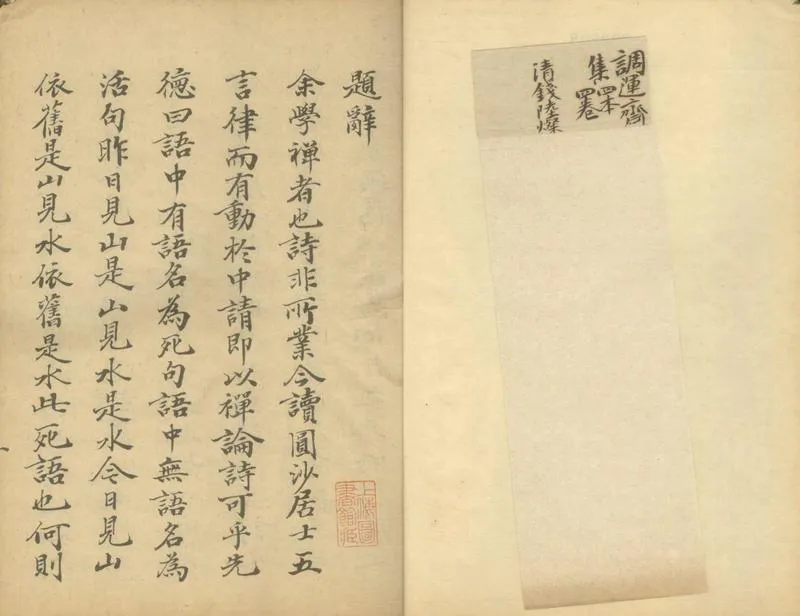 調運齋
集 四本
四卷
清錢陸燦
題辭
余學禪者也詩非所業今讀圓沙居士五
言律而有動於中請即以禪論詩可乎先
德曰語中有語名為死句語中無語名為
活句昨日見山是山見水是水今日見山
依舊是山見水依舊是水此死語也何則
上海圖
書館藏